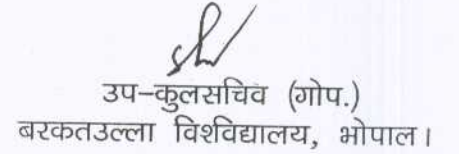 उप-कुलसचिव (गोप.)
बरकतउल्ला विश्वविद्यालय, भोपाल।